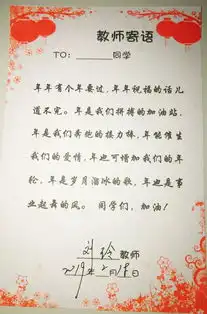 教师寄语
TO：______同学
年年有个年要过，年年祝福的话儿
道不完。年是我们拼搏的加油站，
年是我们奔跑的接力棒，年能催生
我们的爱情，年也可增加我们的年
轮，年是岁月溜冰的歌，年也是事
业起舞的风。 同学们，加油！
刘玲 教师
2019年2月18日